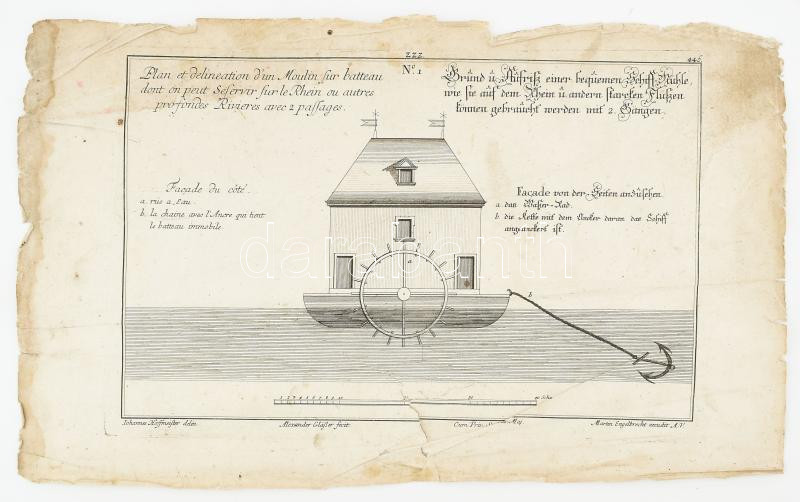 ZZZ
445
Nº. 1
Plan et delineation d'un Moulin sur batteau
dont on peut Seservir sur le Rhein ou autres
profondes Rivieres avec 2 passages.
Grund ŭ. Aŭfriß einer beqŭemen Schiff-Mühle,
wie sie aŭf dem Rhein ŭ. andern starcken Flüßen
können gebraŭcht werden mit 2. Gängen.
Façade du côté.
a. rüe a Eau.
b. la chaine avec l'Ancre qui tient
le batteau immobile.
Façade von der Seiten anzŭsehen.
a. das Waßer-Rad.
b. die Kette mit dem Ancker daran das Schiff
angeanckert ist.
a
b
darabanth
10
20
30
40 Schu
Iohannes Hoffmeister delin.
Alexander Gläßer fecit.
Cum Priv. Maj.
Martin Engelbrecht excudit A.V.